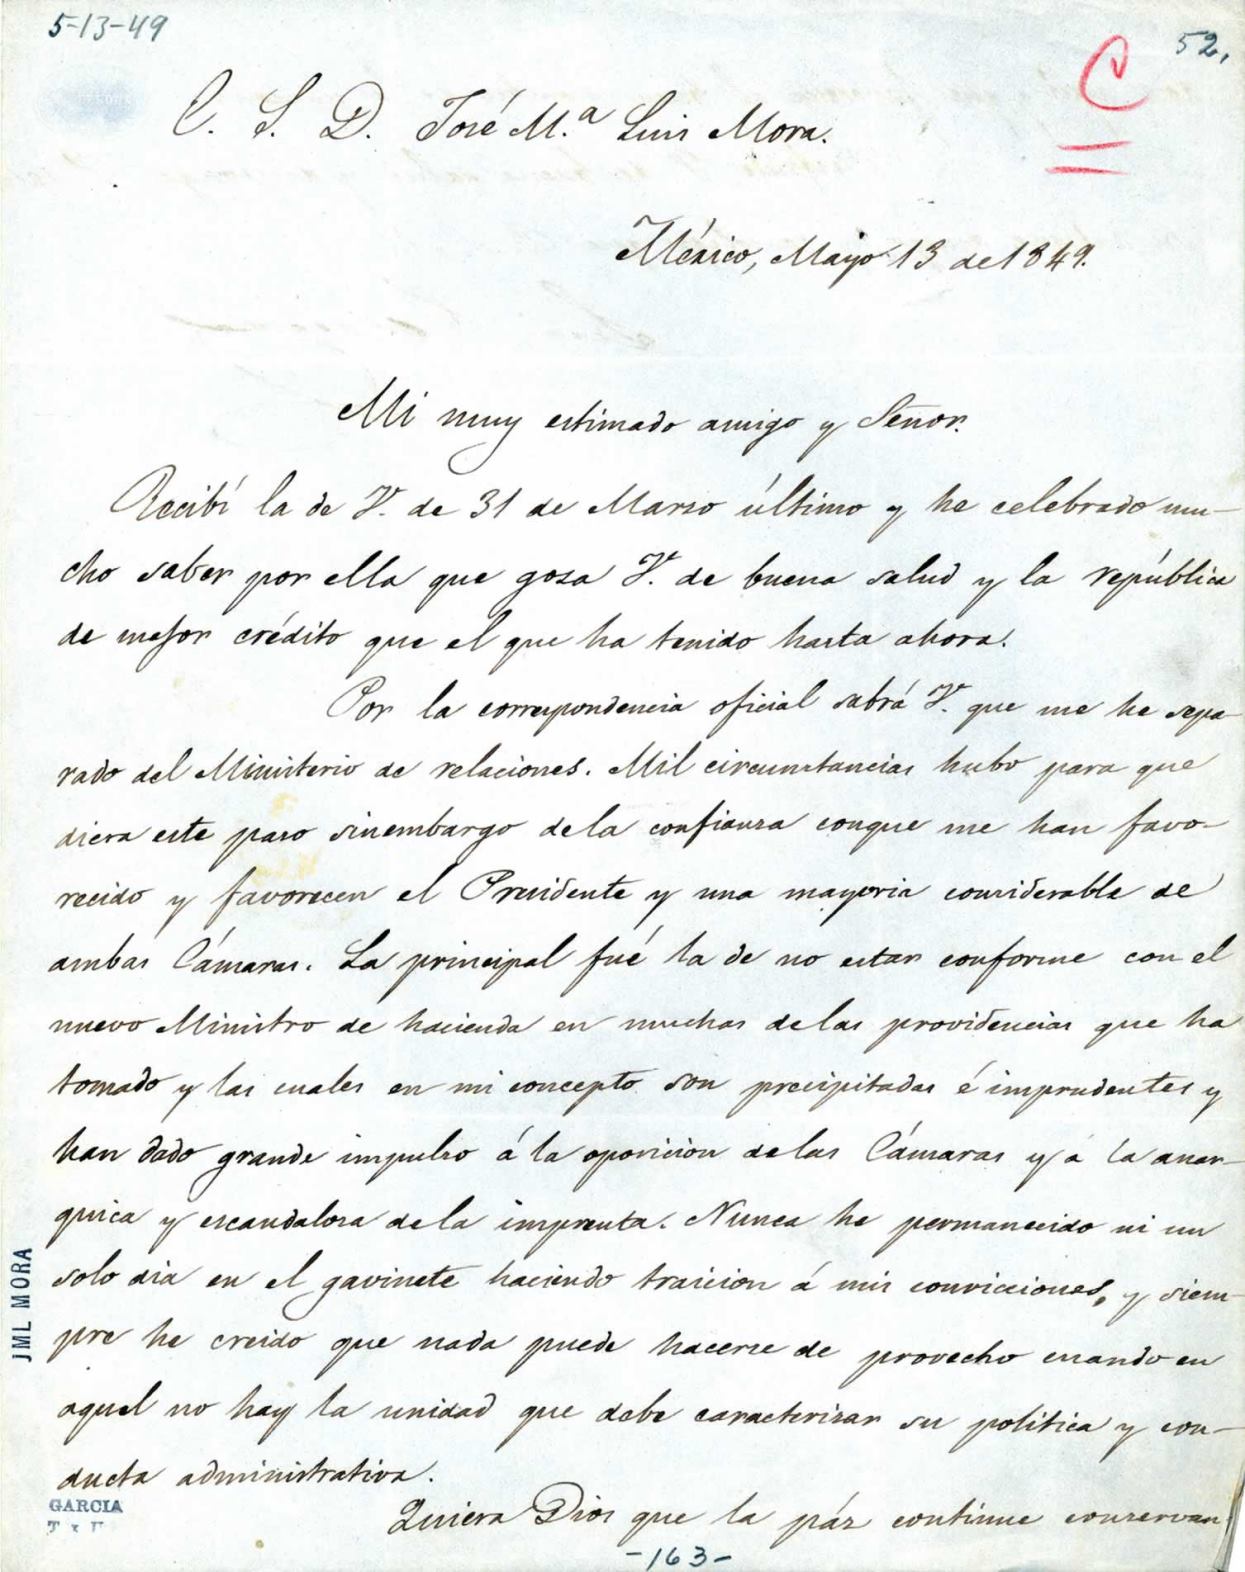 5-13-49
52.
C
C. S. D. José M.ª Luis Mora.
México, Mayo 13 de 1849.
Mi muy estimado amigo y Señor.
Recibí la de V. de 31 de Marzo último y he celebrado mu-
cho saber por ella que gosa V. de buena salud y la república
de mejor crédito que el que ha tenido hasta ahora.
Por la correspondencia oficial sabrá V. que me he sepa-
rado del Ministerio de relaciones. Mil circunstancias hubo para que
diera este paso sinembargo dela confianza conque me han favo-
recido y favorecen el Presidente y una mayoria considerable de
ambas Cámaras. La principal fué la de no estar conforme con el
nuevo Ministro de hacienda en muchas delas providencias que ha
tomado y las cuales en mi concepto son precipitadas é imprudentes y
han dado grande impulso á la oposicion delas Cámaras y á la anar-
quica y escandalosa dela imprenta. Nunca he permanecido ni un
solo dia en el gavinete haciendo traicion á mis convicciones, y siem-
pre he creido que nada puede hacerse de provecho cuando en
aquel no hay la unidad que debe caracterizar su politica y con-
ducta administrativa.
Quiera Dios que la páz continue conservan
JML MORA
GARCIA
-163-